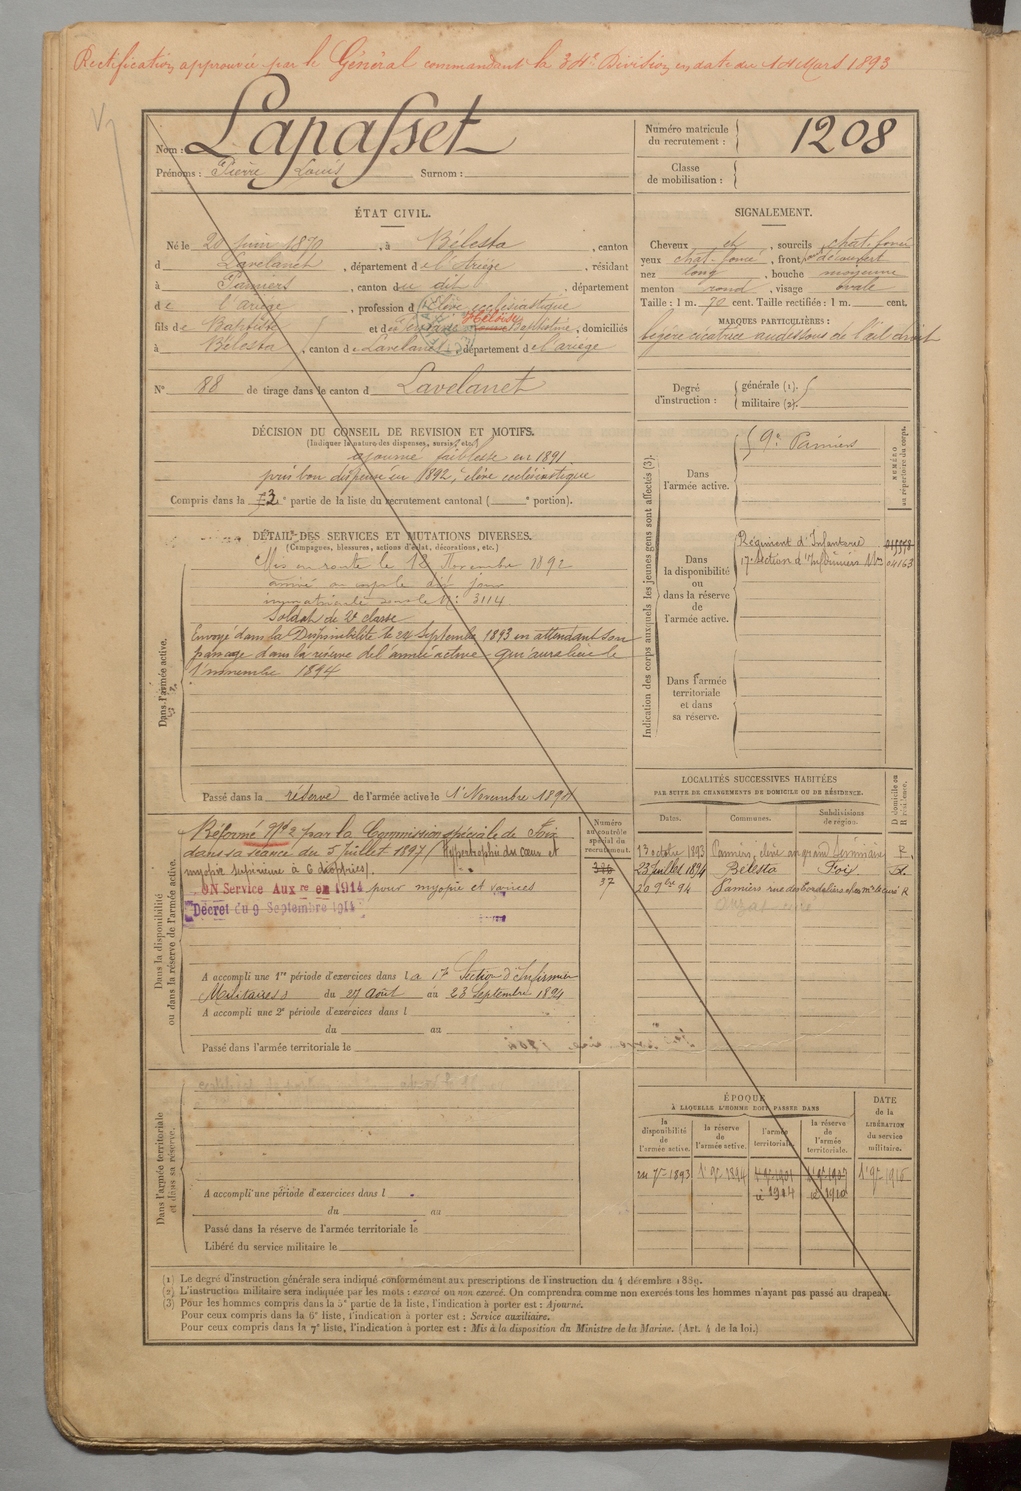 Rectification approuvée par le Général commandant la 34e Division en date du 14 Mars 1893
Nom : Lapasset
Prénoms : Pierre Louis Surnom :
Numéro matricule du recrutement : 1208
Classe de mobilisation :
ÉTAT CIVIL.
Né le 20 juin 1870, à Bélesta, canton
d Lavelanet, département de l'Ariège, résidant
à Pamiers, canton du dit, département
de l'ariège, profession d'Elève ecclésiastique
fils de Baptiste et de Héloïse, domiciliés
à Bélesta, canton de Lavelanet, département de l'ariège
N° 88 de tirage dans le canton d Lavelanet
SIGNALEMENT.
Cheveux et, sourcils chat. foncé
yeux chat. foncé, front découvert
nez long, bouche moyenne
menton rond, visage ovale
Taille : 1 m. 70 cent. Taille rectifiée : 1 m. cent.
MARQUES PARTICULIÈRES :
légère cicatrice au dessous de l'œil droit
Degré d'instruction : générale (1).
militaire (2).
DÉCISION DU CONSEIL DE REVISION ET MOTIFS.
(Indiquer la nature des dispenses, sursis, etc.)
ajourné faiblesse en 1891
pris bon dispensé en 1892, élève ecclésiastique
Compris dans la e partie de la liste du recrutement cantonal ( e portion).
Indication des corps auxquels les jeunes gens sont affectés (3).
NUMÉRO au répertoire du corps.
Dans l'armée active.
9e Pamiers
Dans la disponibilité ou dans la réserve de l'armée active.
Régiment d'Infanterie
17e Section d'Infirmiers Mres 04163
Dans l'armée territoriale et dans sa réserve.
DÉTAIL DES SERVICES ET MUTATIONS DIVERSES.
(Campagnes, blessures, actions d'éclat, décorations, etc.)
Dans l'armée active.
Mis en route le 12 Novembre 1892
arrivé au corps le dit jour
immatriculé sous le N° 3114
Soldat de 2e classe
Envoyé dans la Disponibilité le 24 Septembre 1893 en attendant son
passage dans la réserve de l'armée active qui aura lieu le
1er novembre 1894
Passé dans la réserve de l'armée active le 1er Novembre 1894
LOCALITÉS SUCCESSIVES HABITÉES
PAR SUITE DE CHANGEMENTS DE DOMICILE OU DE RÉSIDENCE.
Dates. Communes. Subdivisions de région. D domicile ou R résidence.
13 octobre 1893 Pamiers, élève au grand Séminaire R.
23 juillet 1894 Bélesta Foix
20 9bre 94 Pamiers rue des Cordeliers R
Dans la disponibilité ou dans la réserve de l'armée active.
Numéro au contrôle spécial du recrutement.
37
Réformé No 2 par la Commission spéciale de Foix
dans sa séance du 5 Juillet 1897 (Hypertrophie du cœur et
myopie supérieure à 6 dioptries).
ON Service Auxre en 1914 pour myopie et varices
Décret du 9 Septembre 1914
A accompli une 1re période d'exercices dans la 17e Section d'Infirmiers
Militaires du 27 Août au 23 Septembre 1894
A accompli une 2e période d'exercices dans l
du au
Passé dans l'armée territoriale le
Dans l'armée territoriale et dans sa réserve.
A accompli une période d'exercices dans l
du au
Passé dans la réserve de l'armée territoriale le
Libéré du service militaire le
ÉPOQUE
À LAQUELLE L'HOMME DOIT PASSER DANS
la disponibilité de l'armée active. la réserve de l'armée active. l'armée territoriale. la réserve de l'armée territoriale.
DATE de la LIBÉRATION du service militaire.
1893 1894 1904 1910 1916
(1) Le degré d'instruction générale sera indiqué conformément aux prescriptions de l'instruction du 4 décembre 1889.
(2) L'instruction militaire sera indiquée par les mots : exercé ou non exercé. On comprendra comme non exercés tous les hommes n'ayant pas passé au drapeau.
(3) Pour les hommes compris dans la 5e partie de la liste, l'indication à porter est : Ajourné.
Pour ceux compris dans la 6e liste, l'indication à porter est : Service auxiliaire.
Pour ceux compris dans la 7e liste, l'indication à porter est : Mis à la disposition du Ministre de la Marine. (Art. 4 de la loi.)